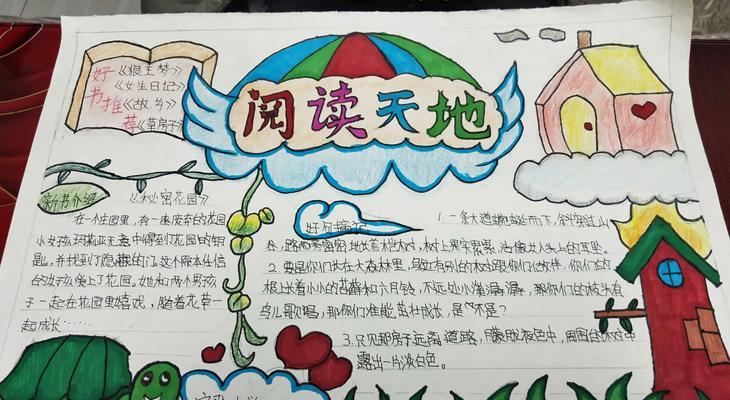 阅读天地
好书推荐
《狼王梦》
《女生日记》
《故乡》
《草房子》
新书介绍
《秘密花园》
在一个庄园里，有一座废弃的花园
小女孩玛莉亚无意中得到了花园的钥
匙，并找到了隐蔽的门，这个原本任性
的女孩爱上了花园。她和两个男孩
子一起在花园里嬉戏，随着花草一
起成长……
好句摘记
1.一条大道蜿蜒而下，斜穿过山
谷，路两旁密密地长着，树上果实累累，女人头上的耳坠。
2.要是你们长在大森林里，鸟，你们的
根上长着小小的苔藓和六月铃，不远处小溪潺潺，那你们的枝头有
鸟儿歌唱，那你们准能茁壮成长，是不是？
3.只见那房子远离道路，朦胧夜色中，周围的树中
露出一片淡白色。